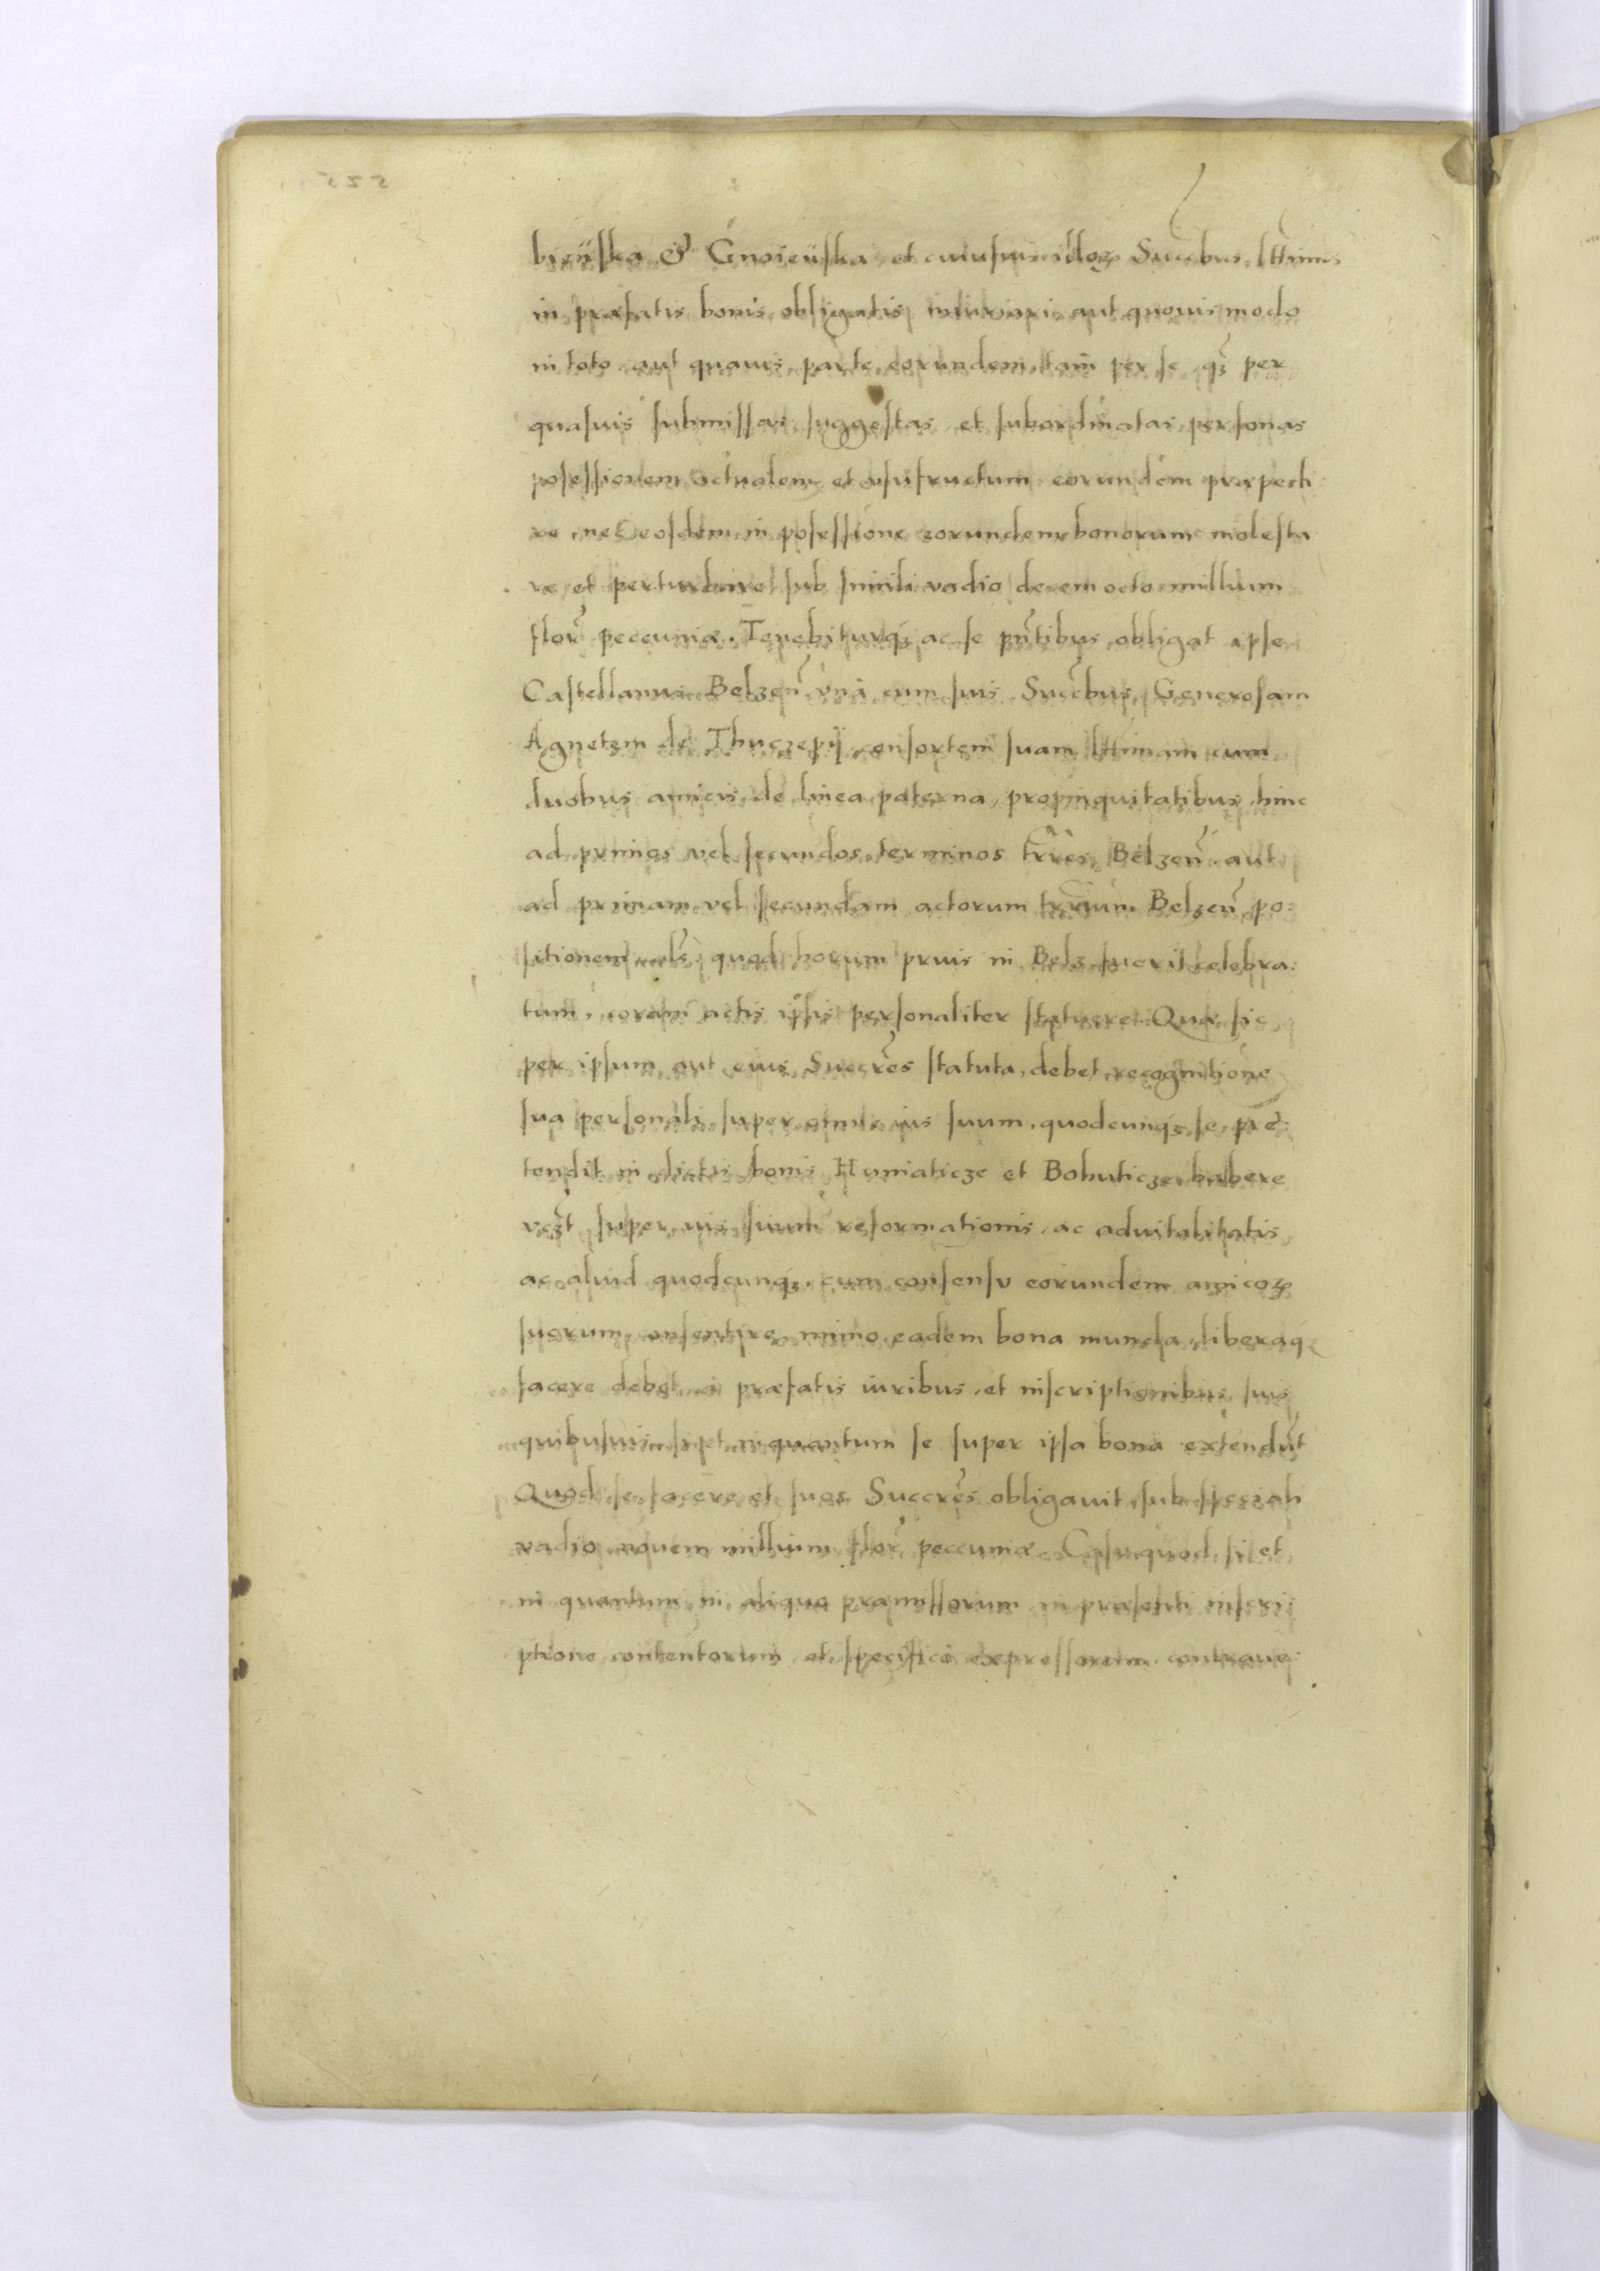 bieÿska & Gnoieÿska et cuiusuis illoꝝ Succ̃bus lttimis
in præfatis bonis obligatis iniuriari aut quouis modo
in toto aut quauis parte eorundem, tam per se qꝫ̃ per
quasuis submissas suggestas et subordinatas personas
posessionem actualem et vsufructum eorundem præpedi
re, nec eosdem in posessione eorundem bonorum molesta
re et perturbare sub simili vadio decem octo millium
flor̃ peccuniæ. Tenebiturqꝫ ac se pñtibus obligat ipse
Castellanus Belzeñ vnà cum suis Succ̃bus, Generosam
Agnetem de Thuczepÿ consortem suam lttimam cum
duobus amicis de linea paterna propinquitatibus hinc
ad primos vel secundos terminos trr̃es Belzeñ aut
ad primam vel secundam actorum trr̃ium Belzeñ po:
sitionem als̃ quod horum prius in Belz fuerit celebra:
tum, coram actis ipsis personaliter statuere. Quæ sic
per ipsum aut eius Succr̃es statuta, debet recognitione
sua personali super omne ius suum, quodcunqꝫ se præ:
tendit in dictis bonis Huniaticze et Bohuticze habere
vcꝫt super ius suum reformationis ac aduitalitatis
ac aliud quodcunqꝫ cum consensu eorundem amicoꝝ
suorum consentire, immo eadem bona munda liberaqꝫ
facere debet à præfatis iuribus et inscriptionibus suis
quibusuis si et in quantum se super ipsa bona extendũt
Quod se facere et suos Succr̃es obligauit sub speciali
vadio nouem millium flor̃ peccuniæ. Casuquod si et
in quantum in aliquo præmissorum in præsenti inscri:
ptione contentorum et specifice expressorum contraue: